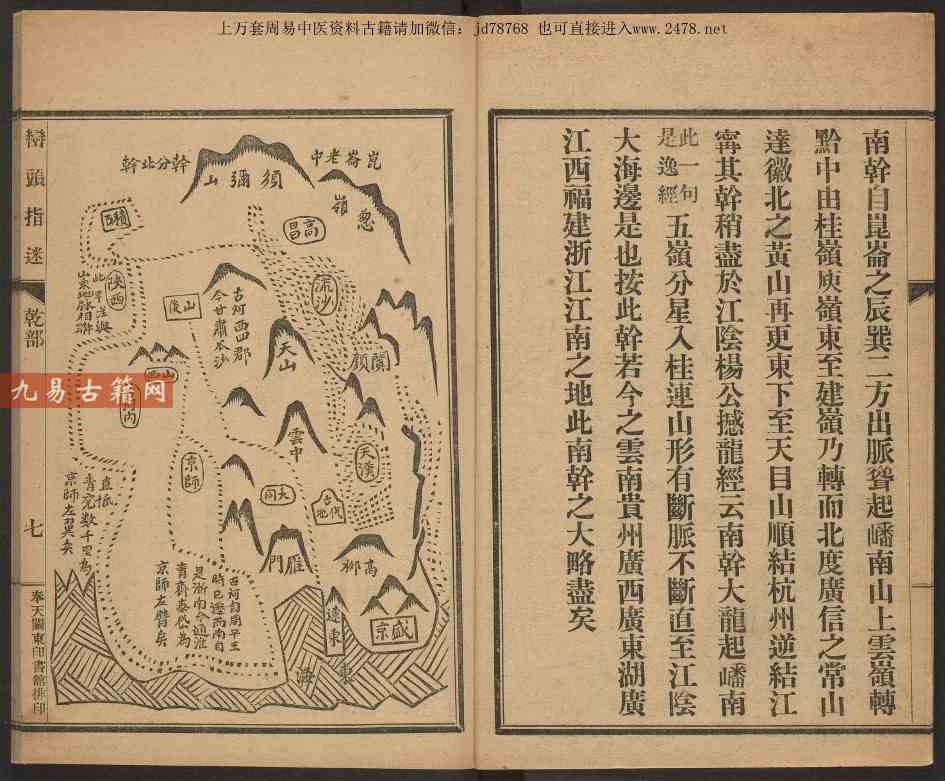 上万套周易中医资料古籍请加微信：jd78768 也可直接进入www.2478.net
南幹自崑崙之辰巽二方出脈聳起嶓南山上雲嶺轉
黔中由桂嶺庾嶺東至建嶺乃轉而北度廣信之常山
達徽北之黃山再更東下至天目山順結杭州逆結江
甯其幹稍盡於江陰楊公撼龍經云南幹大龍起嶓南
此一句
是逸經
五嶺分星入桂連山形有斷脈不斷直至江陰
大海邊是也按此幹若今之雲南貴州廣西廣東湖廣
江西福建浙江江南之地此南幹之大略盡矣
崑崙老中
幹分北幹
須彌山
葱嶺
高昌
流沙
積石
陝西
山後
古河西四郡
今甘肅
天山
闐顏
山西
河內
雲中
天漢
京師
大同
古代地
雁門
高柳
盛京
遼東
東海
直抵
青兗數千里為
京師左翼矣
古河自周平王
時已遷西南自
是浙南今通淮
青齊泰岱為
京師左臂矣
巒頭指迷
乾部
七
奉天關東印書館排印
九易古籍网